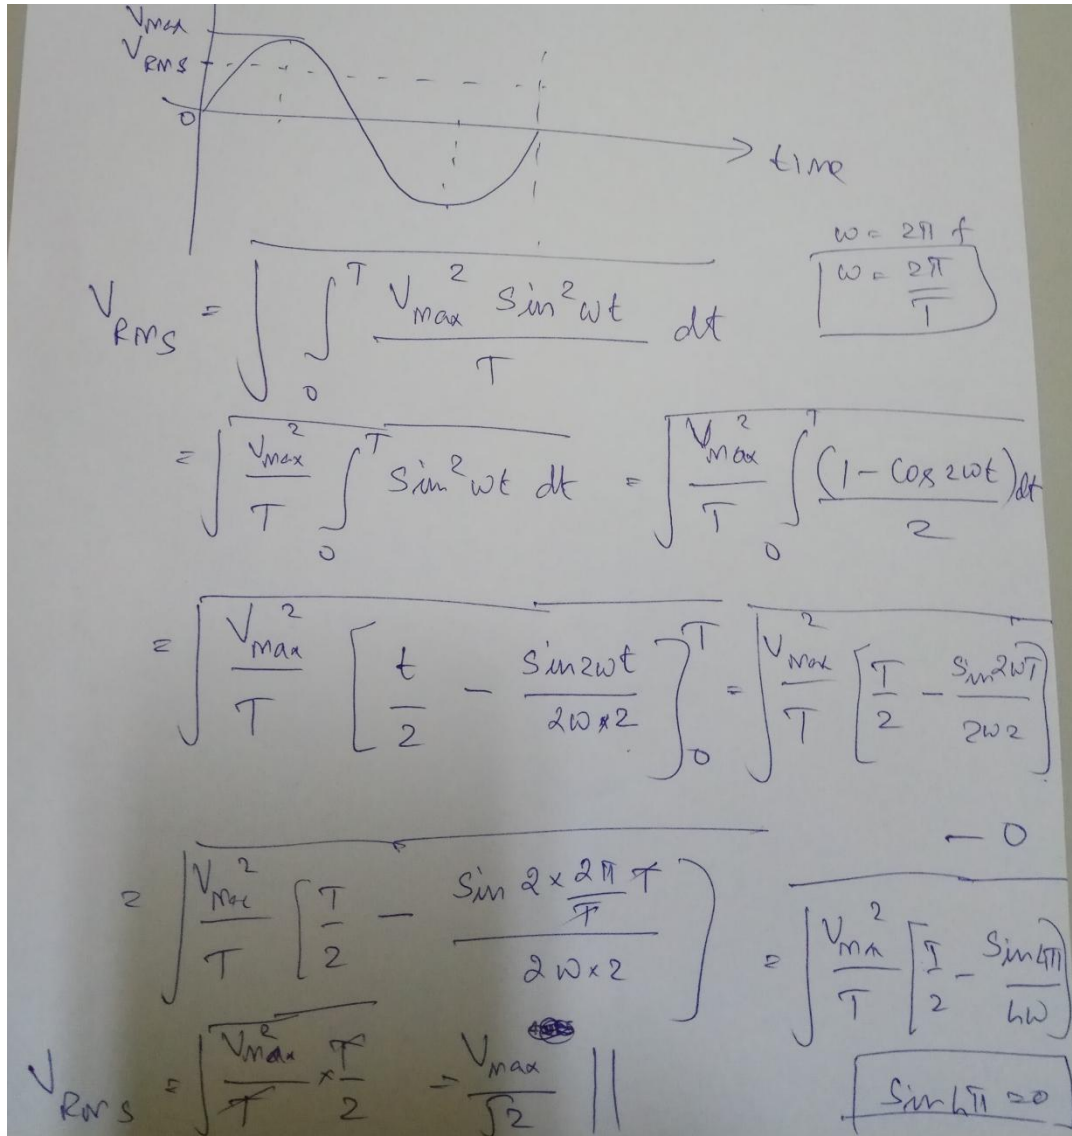 Vmax
VRMS
0
time
ω = 2πf
ω = 2π/T
VRMS = √( ∫₀ᵀ (Vmax² Sin²ωt)/T dt )
= √( Vmax²/T ∫₀ᵀ Sin²ωt dt ) = √( Vmax²/T ∫₀ᵀ (1 - Cos2ωt)/2 dt )
= √( Vmax²/T [ t/2 - Sin2ωt/(2ω×2) ]₀ᵀ ) = √( Vmax²/T [ T/2 - Sin2ωT/(2ω2) ] )
- 0
= √( Vmax²/T [ T/2 - (Sin 2×(2π/T)T)/(2ω×2) ] ) = √( Vmax²/T [ T/2 - Sin4π/4ω ] )
VRMS = √( Vmax²/T × T/2 ) = Vmax/√2 ||
Sin4π = 0